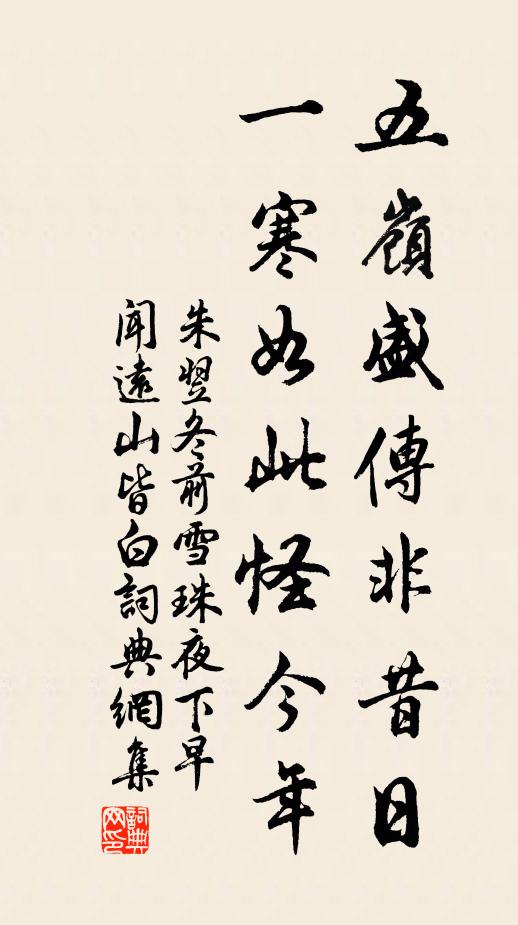 五嶺盛傳非昔日
一寒如此怪今年
朱翌冬前雪珠夜下早
聞遠山皆白詞典網集
詞典
网印